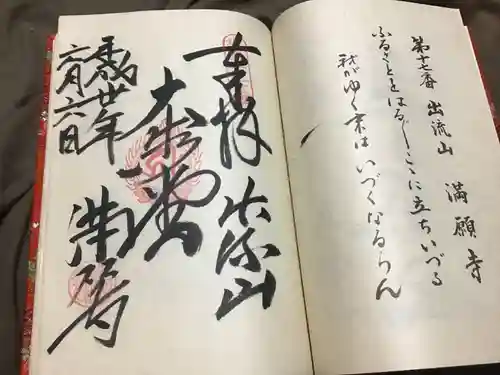 第十七番 出流山 満願寺
ふるさとをはる〲ここに立ちいづる
我がゆく末は いづくなるらん
奉拝 出流山
大御堂
満願寺
平成卅年
六月六日